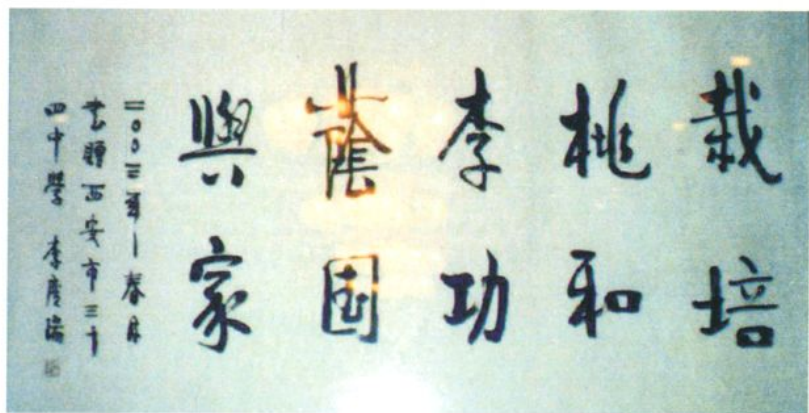 栽培
桃和
李功
蔭國
與家
二〇〇三年春月
書贈西安市三十
四中學 李彦儒